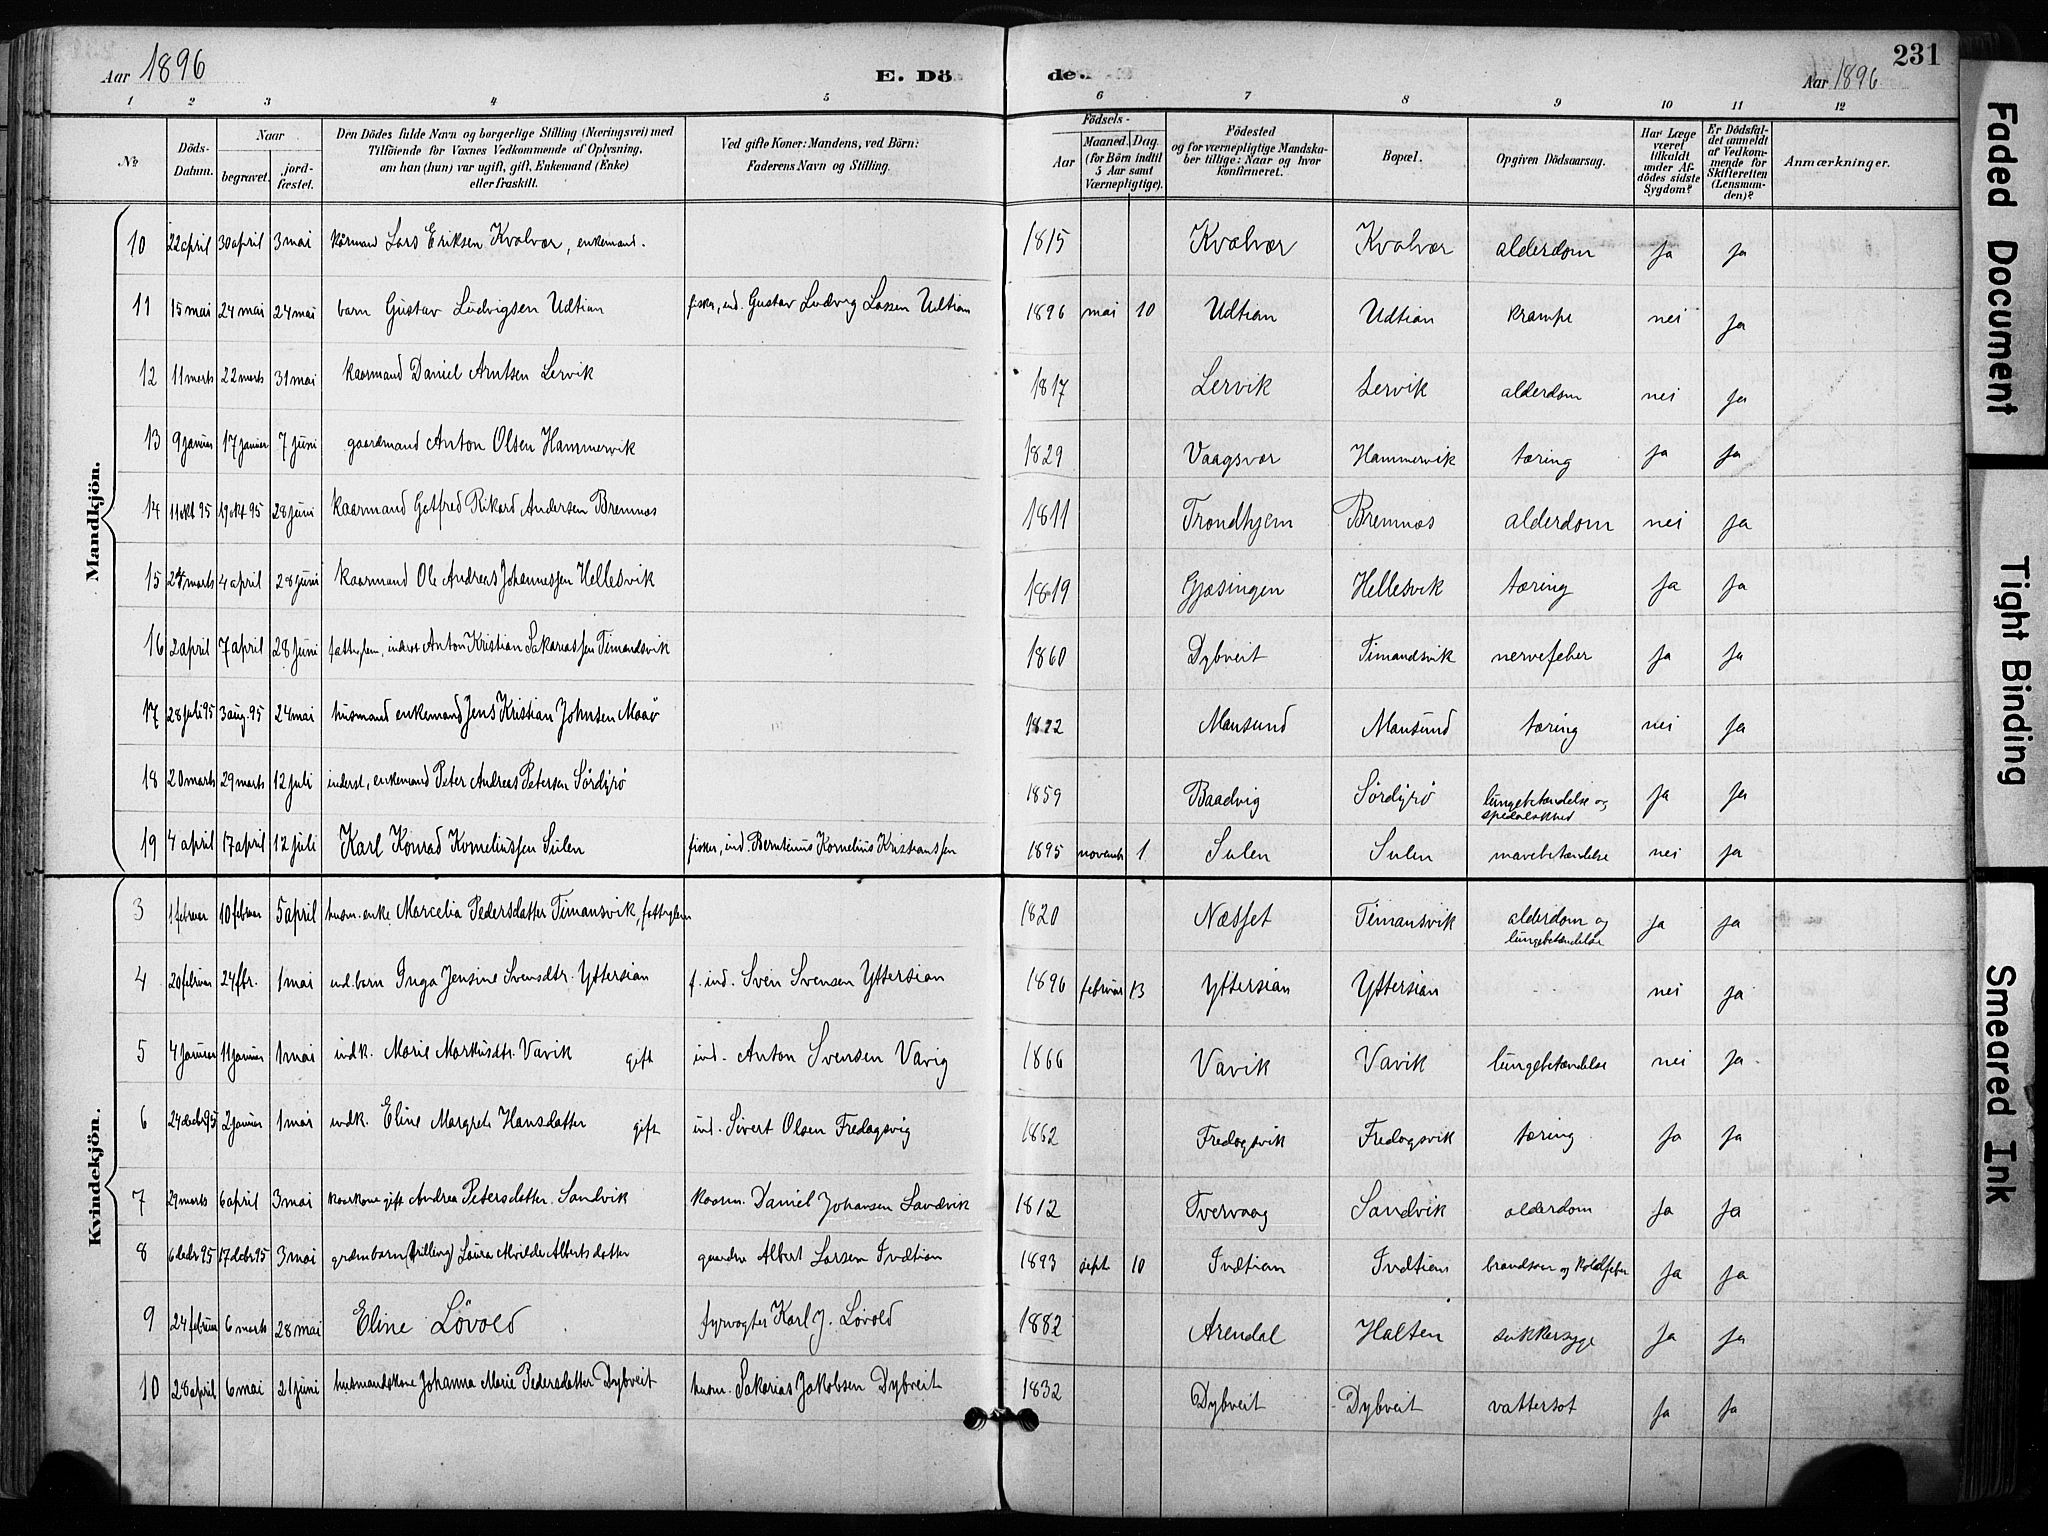 Aar 1896 E. Dö de. Aar 1896 231
1 2 3 4 5 6 7 8 9 10 11 12
No. Döds-Datum. Naar begravet. jord-fæstet. Den Dödes fulde Navn og borgerlige Stilling (Næringsvei) med Tilföiende for Voxnes Vedkommende af Oplysning, om han (hun) var ugift, gift, Enkemand (Enke) eller fraskilt. Ved gifte Koner: Mandens, ved Börn: Faderens Navn og Stilling. Födsels- Aar Maaned. Dag. (for Börn indtil 5 Aar samt Værnepligtige). Födested og for værnepligtige Mandska-ber tillige: Naar og hvor konfirmeret. Bopæl. Opgiven Dödsaarsag. Har Læge været tilkaldt under Af-dödes sidste Sygdom? Er Dödsfal-det anmeldt af Vedkom-mende for Skifteretten (Lensman-den)? Anmærkninger.
Mandkjön.
10 22 april 30 april 3 mai kårmand Lars Eriksen Kvalvær, enkemand. 1815 Kvalvær Kvalvær alderdom ja ja
11 15 mai 24 mai 24 mai barn Gustav Ludvigsen Udtian fisker, ind. Gustav Ludvig Lassen Udtian 1896 mai 10 Udtian Udtian krampe nei ja
12 11 marts 22 marts 31 mai kaarmand Daniel Arntsen Lervik 1817 Lervik Lervik alderdom nei ja
13 9 januar 17 januar 7 juni gaardmand Anton Olsen Hammervik 1829 Vaagsvær Hammervik tæring ja ja
14 11 okt 95 19 okt 95 28 juni kaarmand Gotfred Rikard Andersen Bremnæs 1811 Trondhjem Bremnæs alderdom nei ja
15 24 marts 4 april 28 juni kaarmand Ole Andreas Johannessen Hellesvik 1819 Gjæsingen Hellesvik tæring ja ja
16 2 april 7 april 28 juni fattiglem, inderst Anton Kristian Sakariassen Timandsvik 1860 Dybveit Timandsvik nervefeber ja ja
17 28 juli 95 3 aug. 95 24 mai husmand enkemand Jens Kristian Johnsen Maaö 1822 Mausund Mausund tæring nei ja
18 20 marts 29 marts 12 juli inderst, enkemand Peter Andreas Petersen Sördyrö 1859 Baadvig Sördyrö lungebetændelse og spedalskhed ja ja
19 4 april 17 april 12 juli Karl Konrad Korneliussen Sulen fisker, ind. Berntinus Kornelius Kristianssen 1895 novemb 1 Sulen Sulen mavebetændelse nei ja
Kvindekjön.
3 1 februar 10 februar 5 april husm. enke Marcelia Pedersdatter Timansvik, fattiglem 1820 Næsset Timansvik alderdom og lungebetændelse ja ja
4 20 februar 24 fbr. 1 mai ind. barn Inga Jensine Svensdtr. Yttersian f. ind. Svein Svensen Yttersian 1896 februar 13 Yttersian Yttersian nei ja
5 4 januar 11 januar 1 mai indk. Marie Markusdtr. Vavik gift ind. Anton Svensen Vavig 1866 Vavik Vavik lungebetændelse nei ja
6 24 decbr 95 2 januar 1 mai indk. Eline Margrete Hansdatter gift ind. Sivert Olsen Fredagsvig 1862 Fredagsvik Fredagsvik tæring ja ja
7 29 marts 6 april 3 mai kaarkone gift Andrea Petersdatter Sandvik kaarm. Daniel Johansen Sandvik 1812 Tvervaag Sandvik alderdom ja ja
8 6 decbr 95 17 decbr 95 3 mai grdm barn (trilling) Laura Alvilde Albertsdatter gaardm Albert Larsen Indtian 1893 sept 10 Indtian Indtian brandsaar og koldfeber ja ja
9 24 februar 6 marts 28 mai Eline Lövold fyrvogter Karl J. Lövold 1882 Arendal Halten sukkersyge ja ja
10 28 april 6 mai 21 juni husmandskone Johanna Marie Pedersdatter Dybveit husm. Sakarias Jakobsen Dybveit 1832 Dybveit Dybveit vattersot ja ja
Faded Document
Tight Binding
Smeared Ink